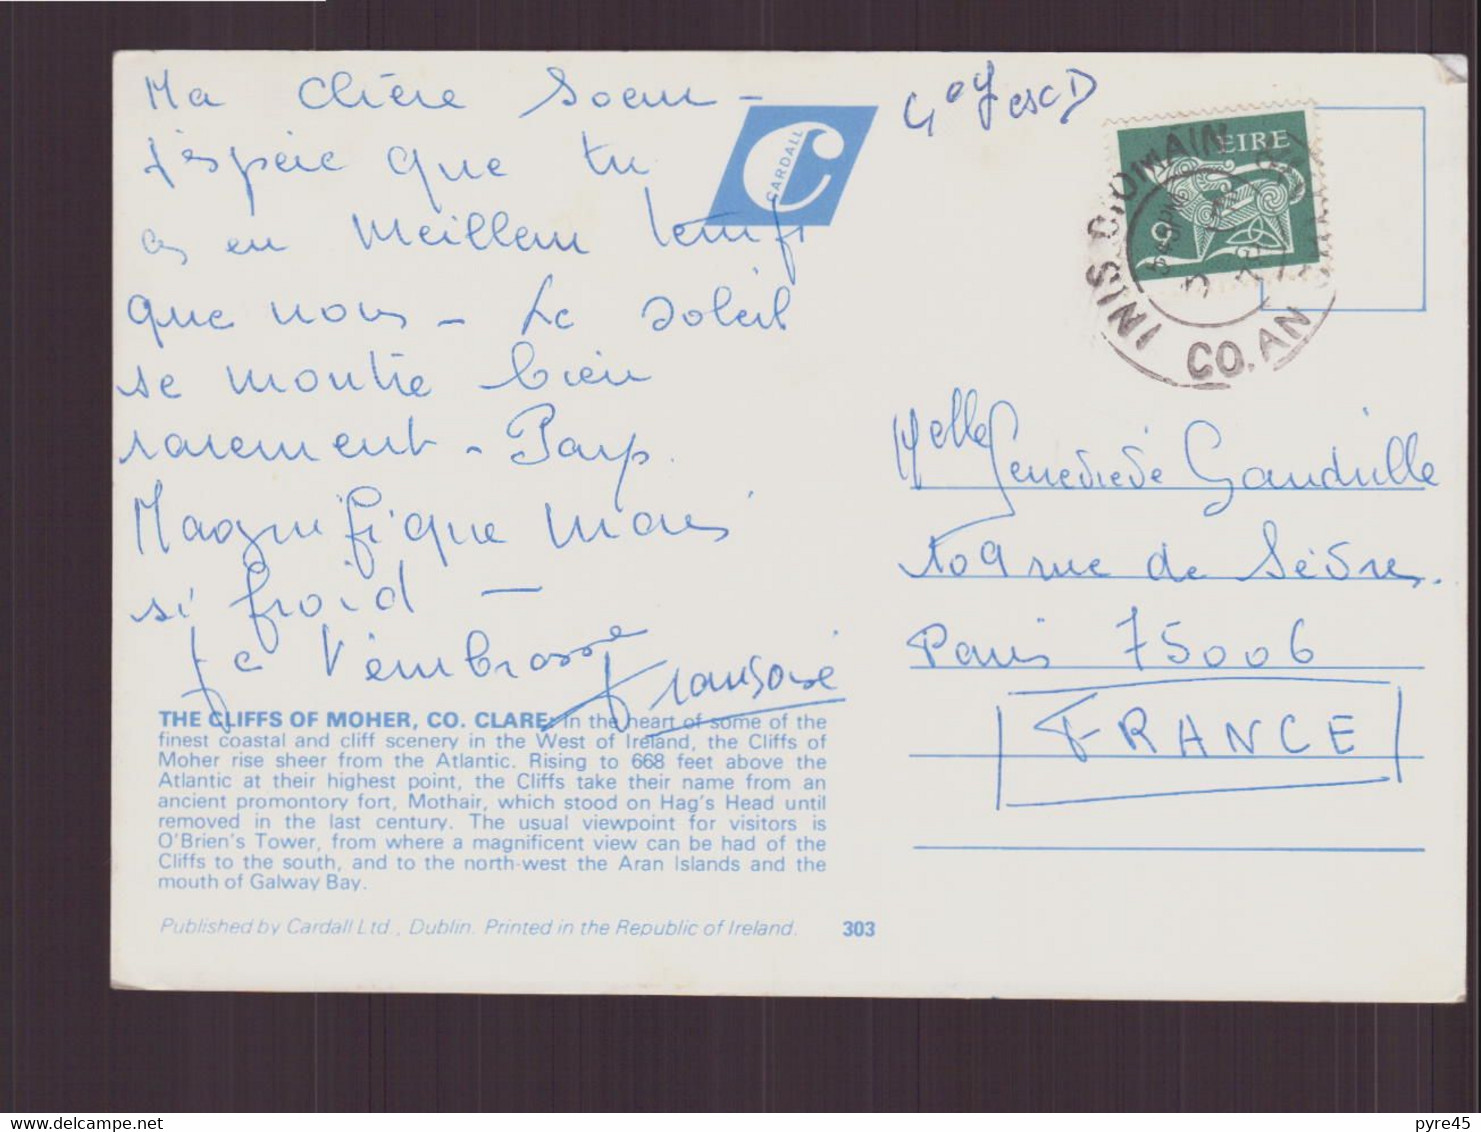 Ma chère soeur -
j'espère que tu
as eu meilleur temps
que nous - Le soleil
se montre bien
rarement - Pays
Magnifique mais
si froid -
Je t'embrasse
Françoise
CARDALL
THE CLIFFS OF MOHER, CO. CLARE: In the heart of some of the
finest coastal and cliff scenery in the West of Ireland, the Cliffs of
Moher rise sheer from the Atlantic. Rising to 668 feet above the
Atlantic at their highest point, the Cliffs take their name from an
ancient promontory fort, Mothair, which stood on Hag's Head until
removed in the last century. The usual viewpoint for visitors is
O'Brien's Tower, from where a magnificent view can be had of the
Cliffs to the south, and to the north-west the Aran Islands and the
mouth of Galway Bay.
Published by Cardall Ltd., Dublin. Printed in the Republic of Ireland.
303
esc D
EIRE
INIS
CO. AN
Melle Geneviève Gaudrille
109 rue de Sèvres.
Paris 75006
FRANCE
pyre45